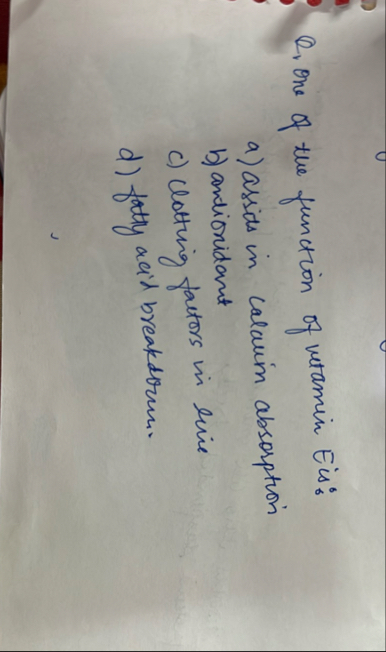 Q. One of the function of vitamin E is:
a) assists in calcium absorption
b) antioxidant
c) clotting factors in live
d) fatty acid breakdown.